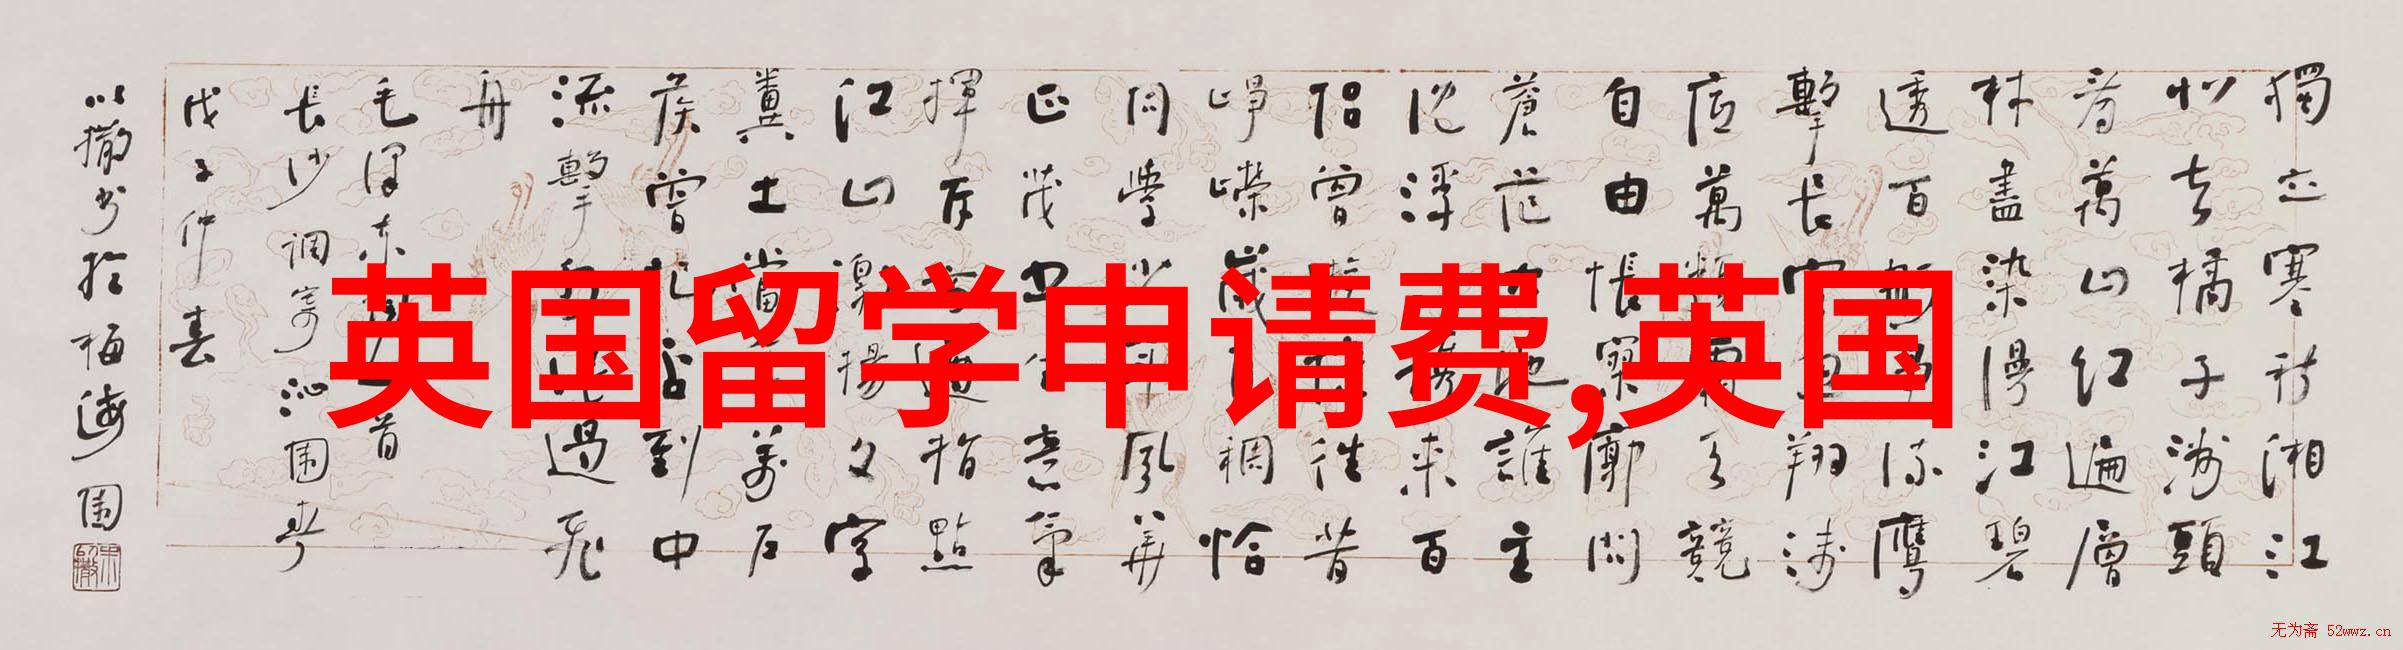 獨立寒秋湘江
北去橘子洲頭
看萬山红遍層
林盡染漫江碧
透百舸爭流鹰
擊長空魚翔淺
底萬類霜天競
自由悵寥廓問
蒼茫大地誰主
沉浮携来百
侣曾遊憶往昔
崢嶸歲月稠恰
同學少年風華
正茂書生意氣
揮斥方遒指點
江山激揚文字
糞土當年萬户
侯曾記否到中
流擊水浪遏飛
舟
毛澤东詞首
長沙 調寄沁園春
戊子仲春
以撒書於梅海園
英国留学申请费,英国
无为斋 52wwz.cn